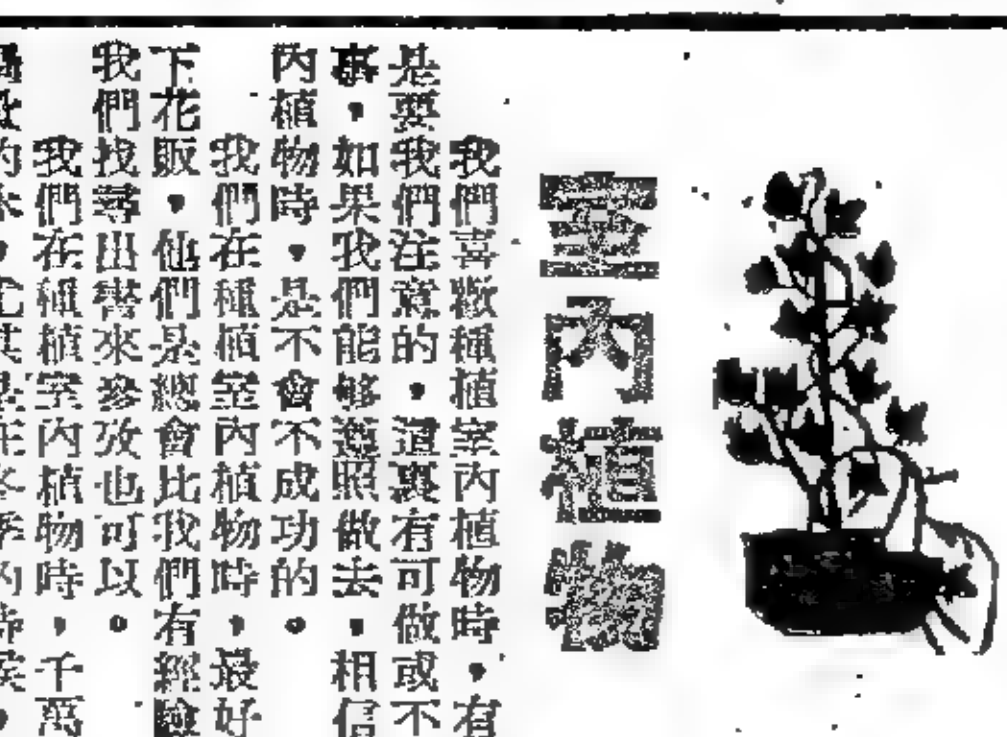 室內植物
我們喜歡種植室內植物時,有
是要我們注意的,這裏有可做或不
事,如果我們能够遵照做去,相信
內植物時,是不會不成功的。
我們在種植室內植物時,最好
下花販,他們是總會比我們有經驗
我們找尋出書來參攷也可以。
我們在種植室內植物時,千萬
的水,尤其是在冬季的時候,